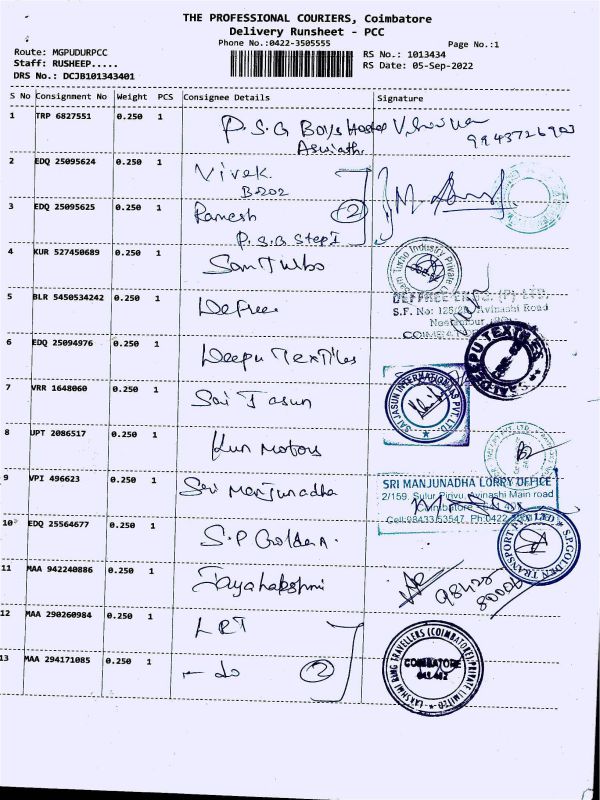 THE PROFESSIONAL COURIERS, Coimbatore
Delivery Runsheet - PCC
Phone No.:0422-3505555
Page No.:1
Route: MGPUDURPCC
Staff: RUSHEEP.....
DRS No.: DCJB101343401
RS No.: 1013434
RS Date: 05-Sep-2022
S No Consignment No Weight PCS Consignee Details Signature
1 TRP 6827551 0.250 1 P.S.G Boys Hostel
Aswath
2 EDQ 25095624 0.250 1 Vivek
B202
3 EDQ 25095625 0.250 1 Ramesh 2
P.S.G Step I
4 KUR 527450689 0.250 1 Sam Turbo
Sam Turbo Industry Private
5 BLR 5450534242 0.250 1 Deffree
S.F. No: 125/2 Avinashi Road
6 EDQ 25094976 0.250 1 Deepu Textiles
7 VRR 1648060 0.250 1 Sai Jasun
SAI JASUN INTERNATIONAL PVT. LTD.
8 UPT 2086517 0.250 1 Kun Motors
9 VPI 496623 0.250 1 Sri Manjunadha
SRI MANJUNADHA LORRY OFFICE
2/159, Sulur Pirivu, Avinashi Main road
10 EDQ 25564677 0.250 1 S.P Golden.
S.P.GOLDEN TRANSPORT PVT LTD
11 MAA 942240886 0.250 1 Jayalakshmi
12 MAA 290260984 0.250 1 LRT
13 MAA 294171085 0.250 1 - do 2
LAKSHMI RING TRAVELLERS (COIMBATORE) PRIVATE LIMITED
COIMBATORE
641 402